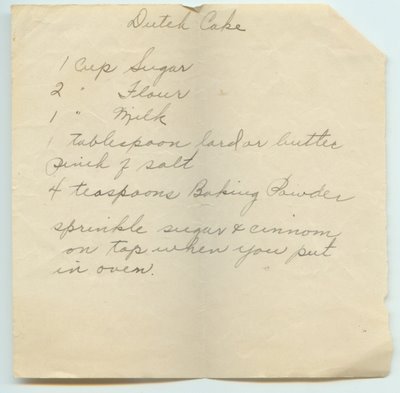 Dutch Cake
1 Cup Sugar
2 " Flour
1 " Milk
1 tablespoon lard or butter
Pinch of salt
4 teaspoons Baking Powder
sprinkle sugar & cinnom
on top when you put
in oven.